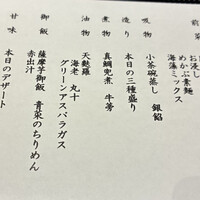 前菜
お浸し
めかぶ素麺
海藻ミックス
吸物
小茶碗蒸し 銀餡
造り
本日の三種盛り
煮物
真鯛兜煮 牛蒡
油物
天麩羅
海老 丸十
グリーンアスパラガス
御飯
薩摩芋御飯 青菜のちりめん
赤出汁
甘味
本日のデザート